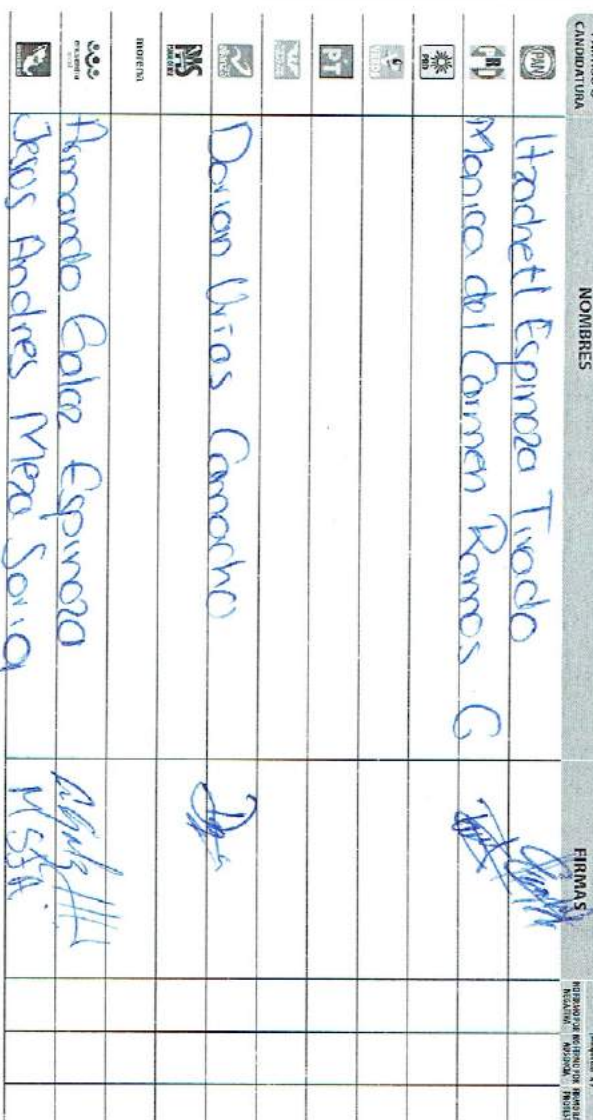 CANDIDATURA NOMBRES FIRMAS
PAN Itzachetl Espinoza Tirado
PRI Monica del Carmen Ramos G
PRD
VERDE
PT
alianza
PAS Dorian Urias Camacho
morena
encuentro social Armando Galaz Espinoza
Jesus Andres Meza Soria M.S.J.A.